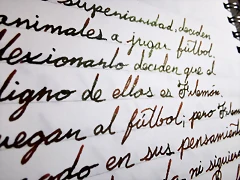 superioridad, deciden
animales a jugar fútbol,
flexionarlo deciden que el
digno de ellos es Filemón.
uegan al fútbol; pero Filemón
en sus pensamient
ni siquiera